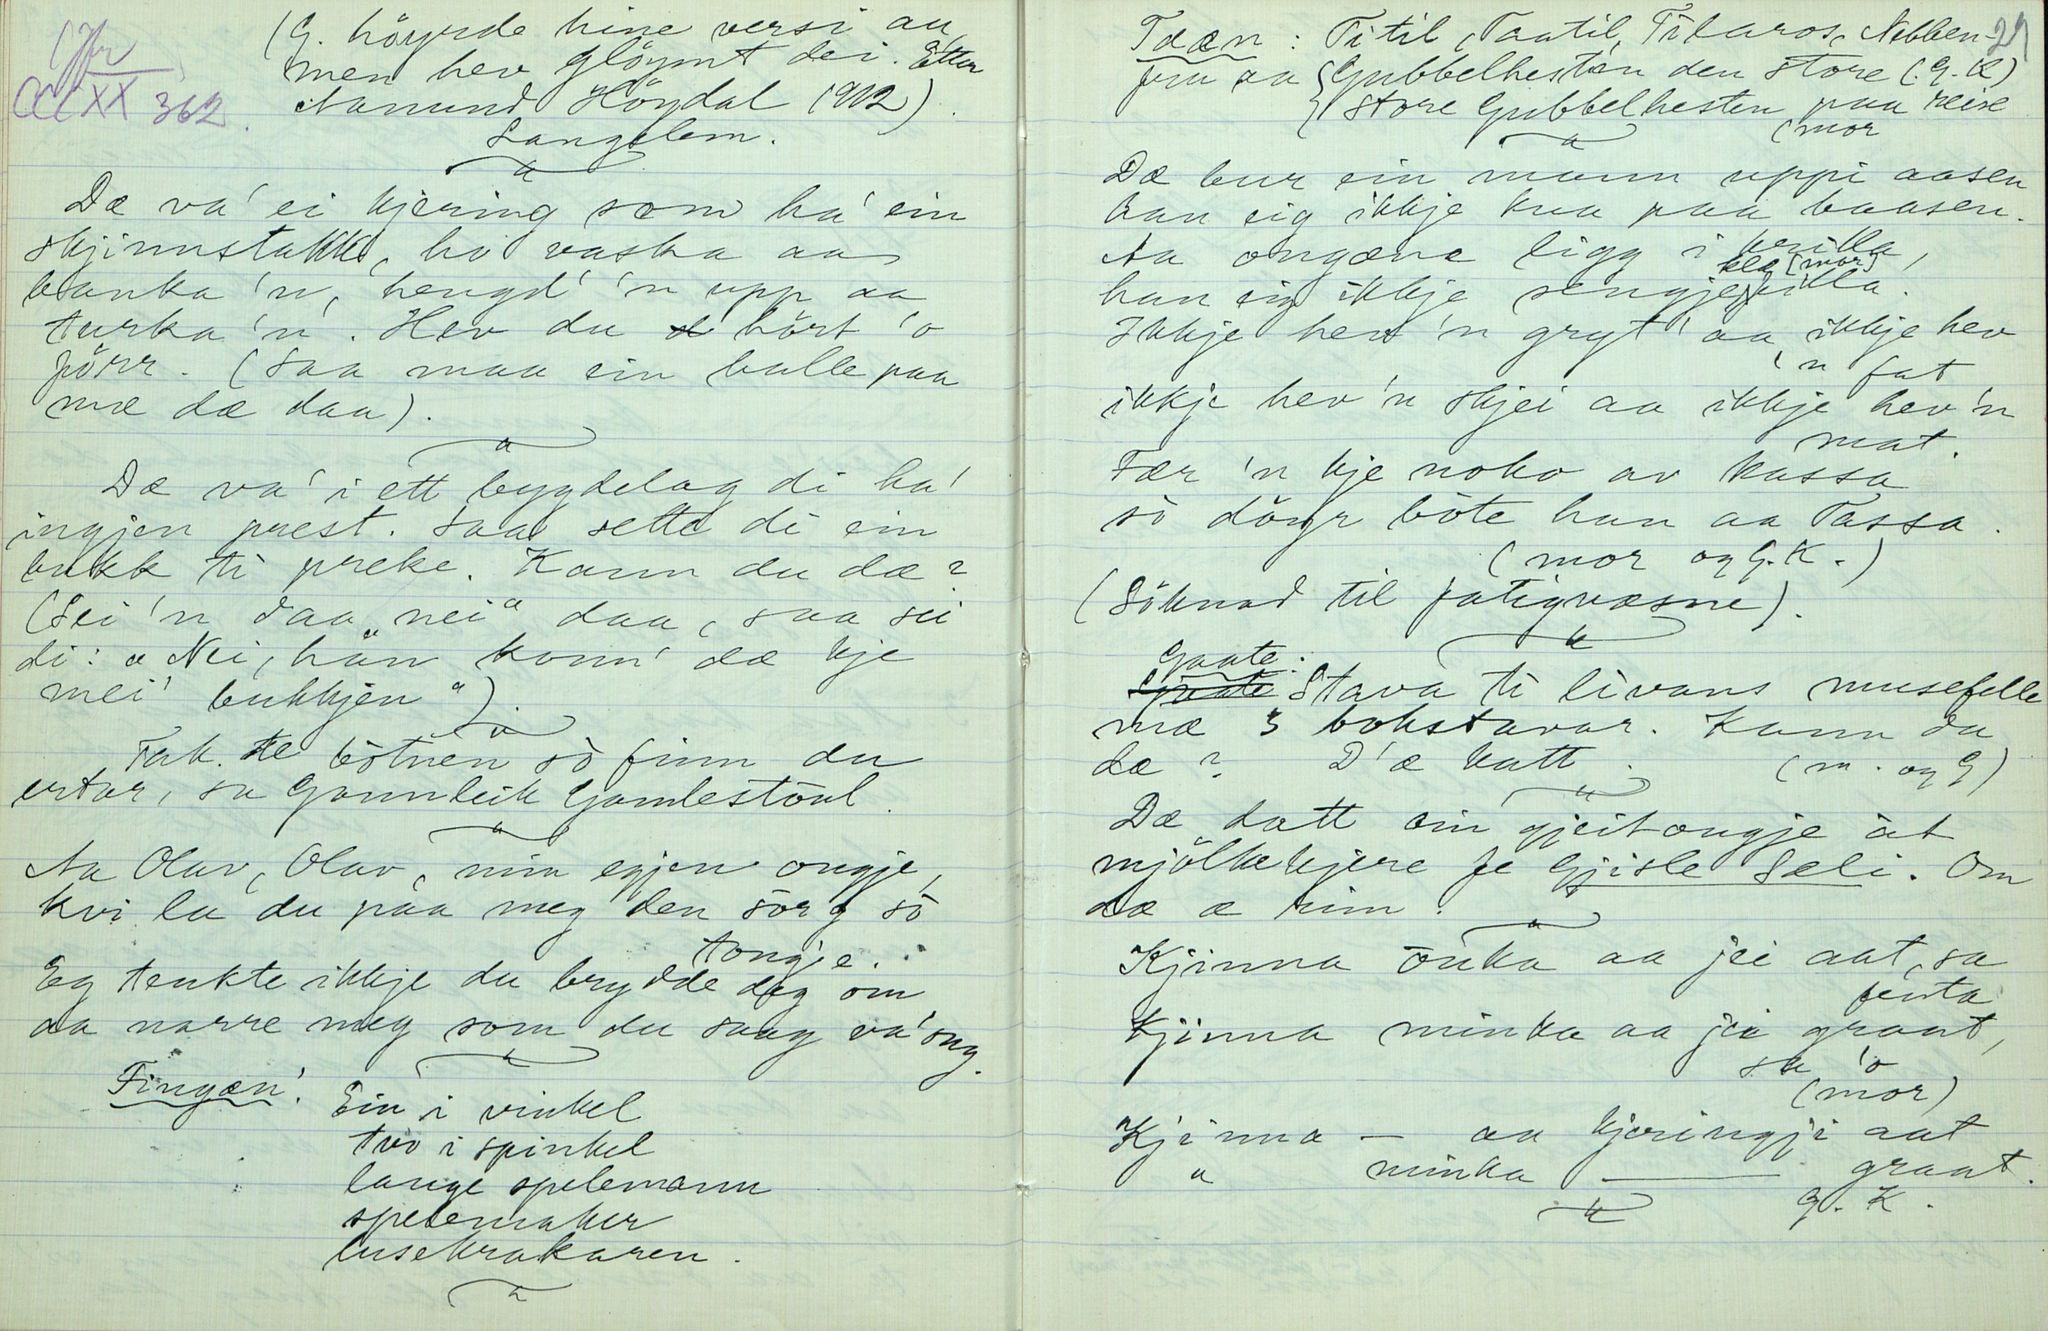 (Jfr
CCCXX 362.
(G. höyrde hine versi au,
men hev glöymt dei. Etter
Aanund Höydal 1912).
Langslem.
Dæ va' ei kjering som ha' ein
skjinnstakk, ho vaska aa
banka 'n, hengd' 'n upp aa
turka 'n. Hev du hört 'o
förr. (Saa maa ein balle paa
mæ dæ daa).
Dæ va' i ett bygdelag di ha'
ingjen prest. Saa sette di ein
bukk ti preke. Kann du dæ?
(Sei 'n daa „nei" daa, saa sei
di: „Nei, han konn' dæ kje
mei' bukkjen").
Tak te bötnen so finn du
ertar, sa Gunnleik Gamlestöul.
Aa Olav, Olav, min egjen ongje,
kvi la du paa meg den sörg so
tongje.
Eg tenkte ikkje du brydde deg om
aa narre meg som du saag va' ong.
Fingan:
Ein i vinkel
tvo i spinkel
lange spelemann
spelemaker
lusekrakaren.
29
Tææn: Titil, Taatil, Tilaros, Nebben-
fru aa { Gubbelhesten den store (G. K)
{ store Gubbelhesten paa reise
(mor
Dæ bur ein mann uppi aasen
han eig ikkje kua paa baasen.
Aa ongæne ligg i krilla,
han eig ikkje sengjefilla.
klæ (mor)
Ikkje hev 'n gryt' aa ikkje hev
'n fat
ikkje hev 'n skjei aa ikkje hev 'n
mat.
Fær 'n kje noko av kassa
so döyr böte han aa Tassa.
(mor og G. K.)
(Söknad til fatigvæsne).
Gaate:
Stava ti livans musefelle
mæ 3 bokstavar. Kann du
dæ? D'æ katt. (m. og G)
Dæ datt ein gjeitongje åt
mjölkekjere fe Gjisle Sæli. Om
dæ æ rim.
Kjinna öuka aa jei aat, sa
jenta
Kjinna minka aa jei graat,
sa 'o
(mor)
Kjinna — aa kjeringji aat
" minka — graat.
G. K.